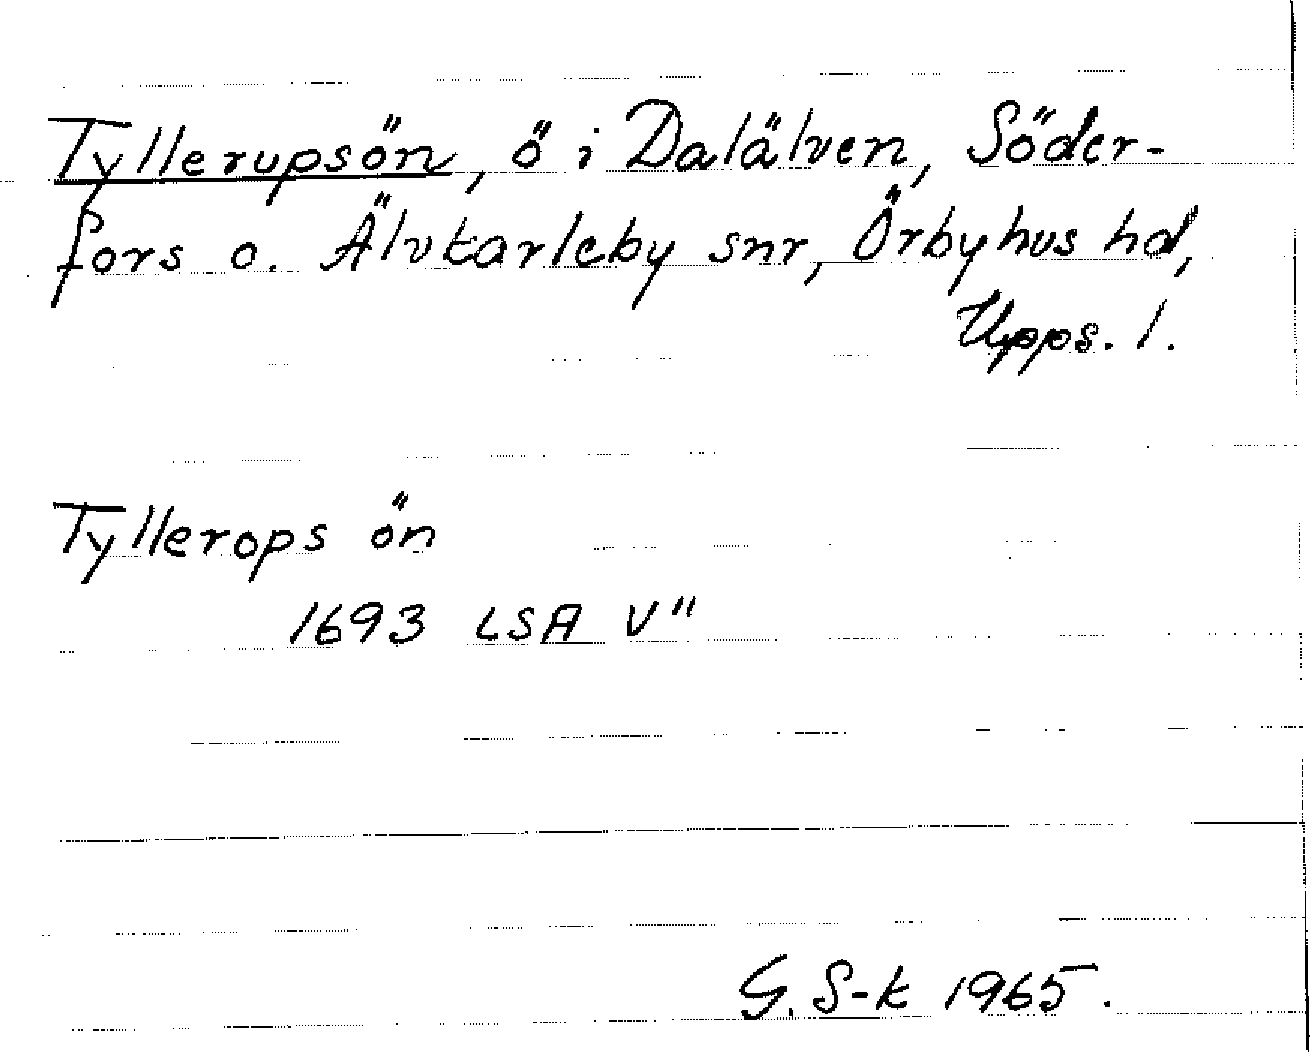 Tyllerupsön, ö i Dalälven, Söder-
fors o. Älvkarleby snr, Örbyhus hd,
Upps. l.
Tyllerops ön
1693 LSA V"
G. S-k 1965.